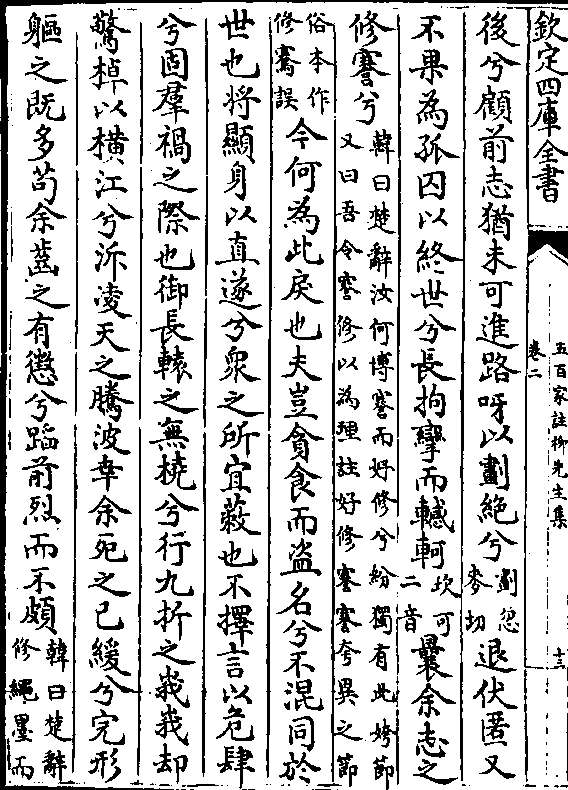 欽定四庫全書
五百家註柳先生集
卷二
十三
後兮顧前志猶未可進路呀以劃絶兮劃忽麥切退伏匿又
不果為孤囚以終世兮長拘攣而轗軻坎可二音曩余志之
修謇兮韓曰楚辭汝何博謇而好修兮紛獨有此姱節又曰吾令謇修以為理註好修謇謇夸異之節
俗本作修騫誤今何為此戾也夫豈貪食而盜名兮不混同於
世也将顯身以直遂兮衆之所宜蔽也不擇言以危肆
兮固羣禍之際也御長轅之無橈兮行九折之峩峩却
驚棹以橫江兮泝凌天之騰波幸余死之已緩兮完形
軀之既多苟余齒之有懲兮蹈前烈而不頗韓曰楚辭修繩墨而